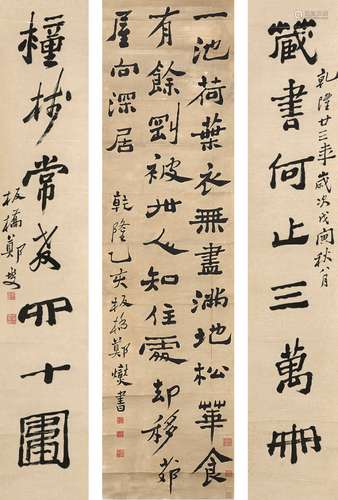 藏書何止三萬冊
乾隆廿三年歲次戊寅秋八月
一池荷葉衣無盡滿地松華食
有餘剛被世人知住處却移茆
屋向深居
乾隆乙亥板橋鄭燮書
種樹常教四十圍
板橋鄭燮